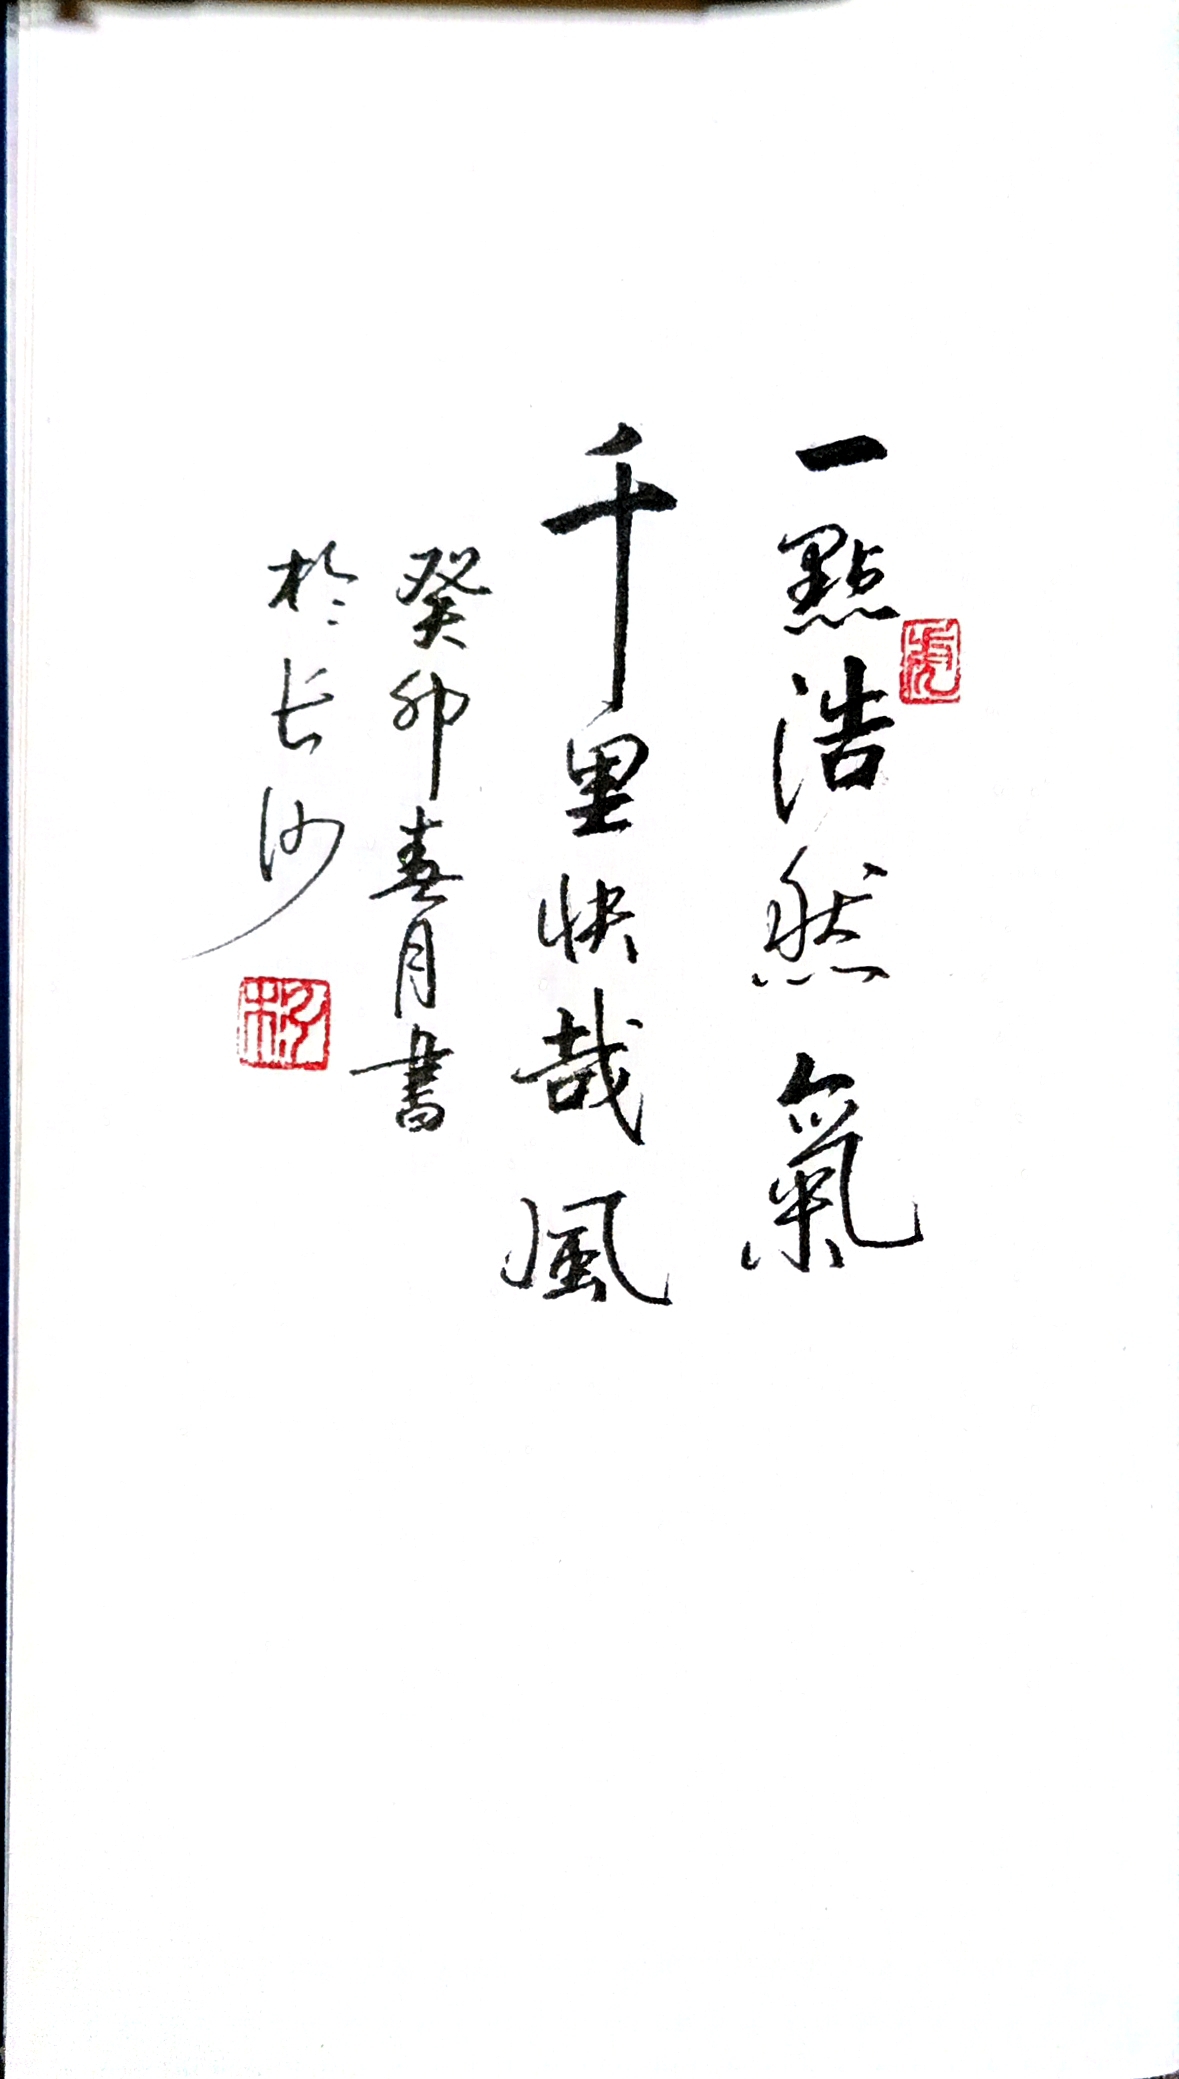 一點浩然氣
千里快哉風
癸卯春月書
於长沙